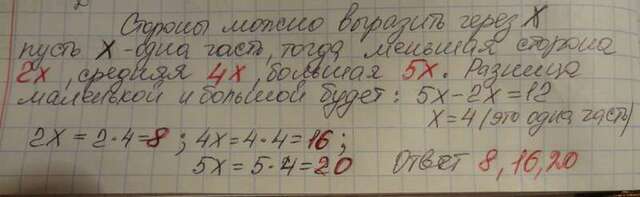 Стороны можно выразить через X
пусть X-одна часть, тогда меньшая сторона
2x, средняя 4x, большая 5x. Разница
маленькой и большой будет: 5x-2x=12
x=4 (это одна часть)
2x=2·4=8; 4x=4·4=16;
5x=5·4=20 Ответ 8,16,20